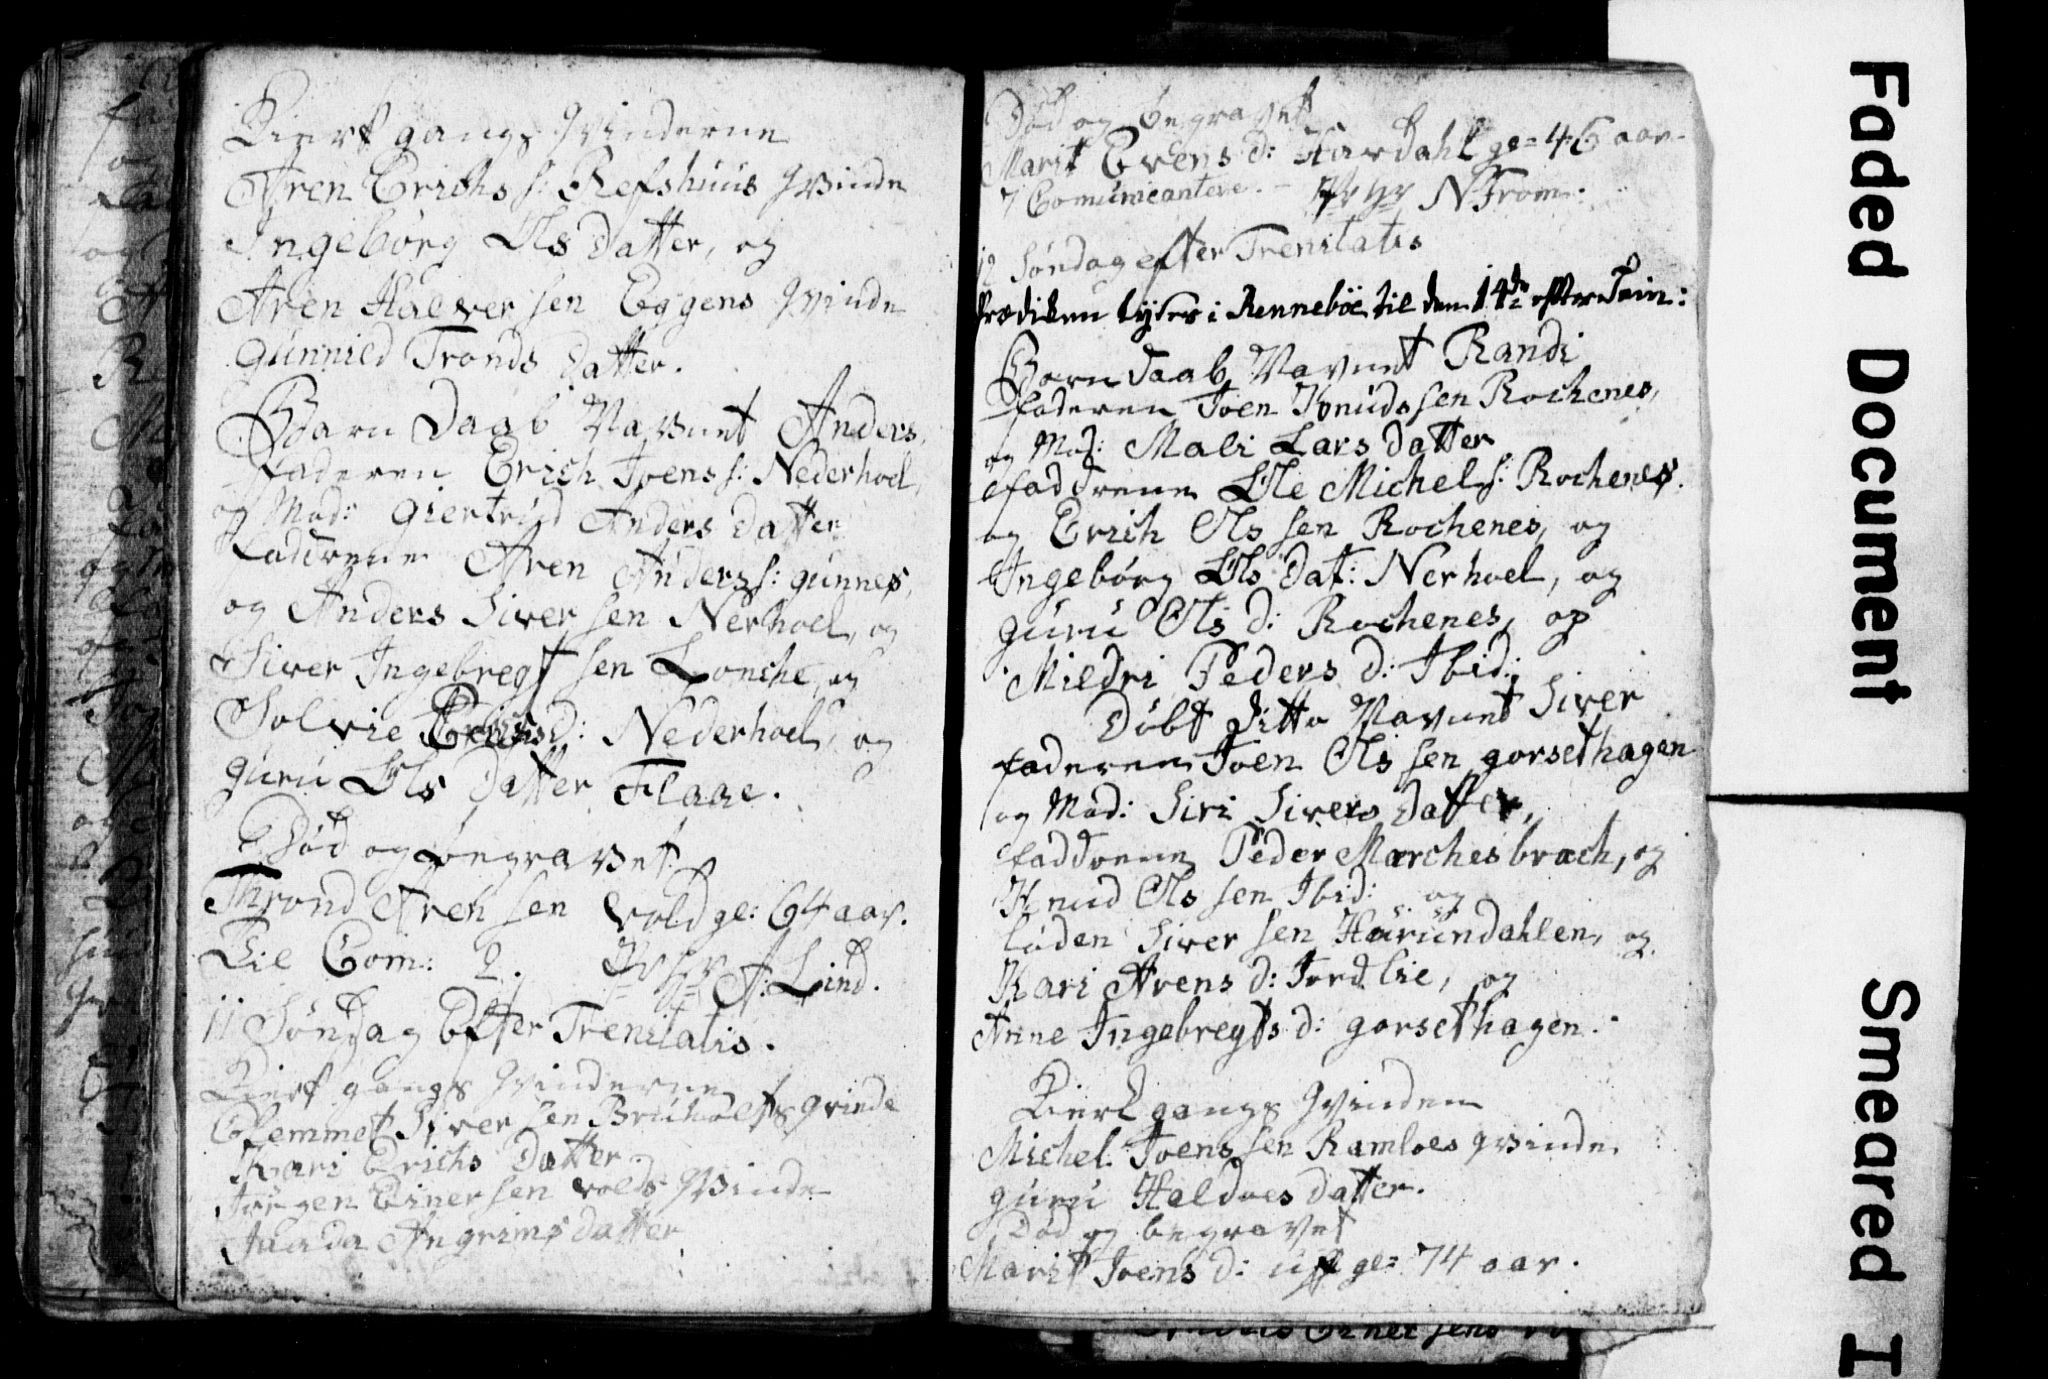 Kierkgangs Qvinderne
Aren Erichs s: Refshuus Qvinde
Ingebörg Ols Datter, og
Aren Halversen Eggens Qvinde
Gunnild Tronds Datter.
Barn Daab Navnet Anders,
Faderen Erich Joens s: Nederhoel,
og Mod: Giertrud Anders Datter
Fadderene Aren Anders s: gunnes,
og Anders Siversen Nerhoel, og
Siver Ingebregt sen Lonche, og
Solvie d: Nederhoel, og
Guru Ols Datter Flaae.
Död og begravet
Thrond Aren sen Vold ge: 64 aar.
Til Com: 2. A: Lind.
11 Söndag Efter Trenitatis.
Kierkgangs Qvinderne
Clemmet Siver sen Bruholts Qvinde
Kari Erichs Datter.
Jörgen Einersen volds Qvinde
Ingrims datter
Död og begravet
Marit Evens d: Hardahl ge= 46 aar
7 Comunicantere. - N From:
12 Söndag efter Trenitatis
Prædiken lyses i Renneböe til den 14de efter Trin:
Barn Daab Navnet Randi
Faderen Joen Knudssen Rochenes,
og Mod: Mali Lars Datter
Faddrene Ole Michels: Rochenes.
og Erich Ols sen Rochenes, og
Ingebörg Ols Dat: Nerhoel, og
Guru Ols d: Rochenes, og
Mildri Peders d: Ibid:
Döbt Ditto Navnet Siver
Faderen Joen Ols sen gorsethagen
og Mod: Siri Sivers Datter,
Faddrene Peder Marchesbrach, og
Knud Ols sen Ibid: og
Loden Siver sen Haurundahlen, og
Kari Arens d: Jordlie, og
Anne Ingebregts d: gorsethagen.
Kierkgangs Qvinden
Michel Joens sen Ramloes Qvinde
guru Haldoes Datter.
Död og begravet
Marit Joens d: uff ge: 74 aar.
Faded Document
Smeared I